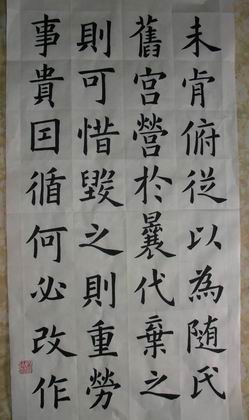 未肯俯從以為随氏
舊宮營於曩代棄之
則可惜毀之則重勞
事貴因循何必改作